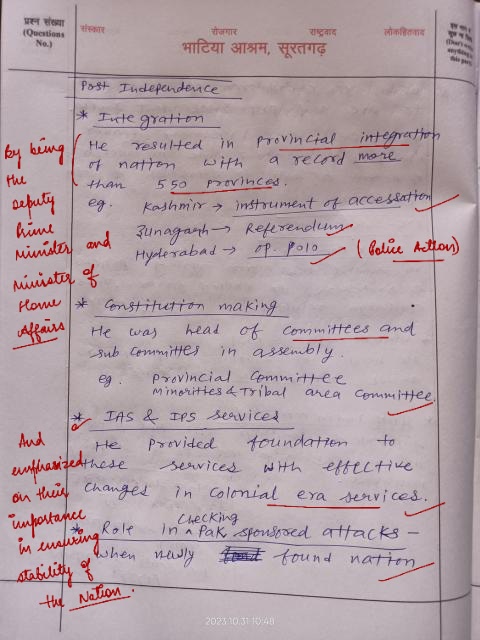 प्रश्न संख्या
(Questions
No.)
संस्कार रोजगार राष्ट्रवाद लोकहितवाद
भाटिया आश्रम, सूरतगढ़
Post Independence
* Integration
He resulted in provincial integration
of nation with a record more
than 550 provinces.
eg. Kashmir → instrument of accessation
Junagagh → Referendum
Hyderabad → op. polo (Police Action)
By being
the
deputy
Prime
minister and
minister of
Home
Affairs
* Constitution making
He was head of committees and
sub committes in assembly.
eg. Provincial Committee
Minorities & Tribal area committee
* IAS & IPS services
He provided foundation to
these services with effective
changes in colonial era services.
And
emphasized
on their
importance
in ensuring
stability of
the Nation.
* Role in checking Pak sponsored attacks –
when newly found nation
2023.10.31 10:48